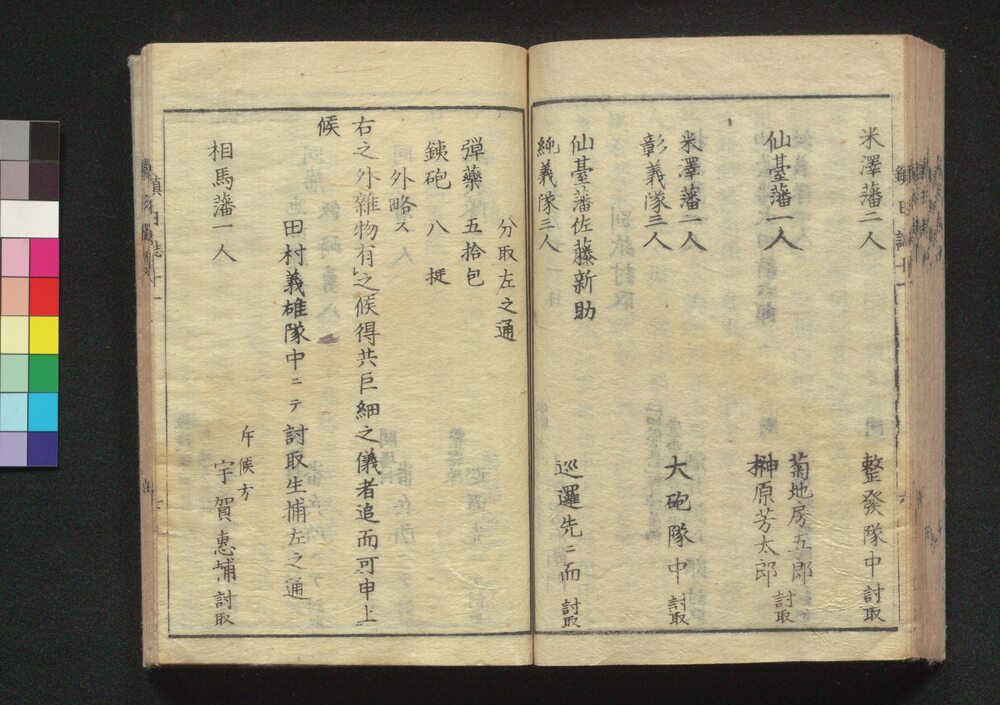 米澤藩二人
整發隊中討取
仙臺藩一人
菊地房五郎
榊原芳太郎討取
米澤藩一人
大砲隊中討取
彰義隊三人
仙臺藩佐藤新助
巡邏先ニ而討取
純義隊三人
分取左之通
彈藥五拾包
銕砲八挺
外略ス
右之外雜物有之候得共巨細之儀者追而可申上
候
田村義雄隊中ニテ討取生捕左之通
斥候方
相馬藩一人
宇賀惠埔討取
鎮日誌十一